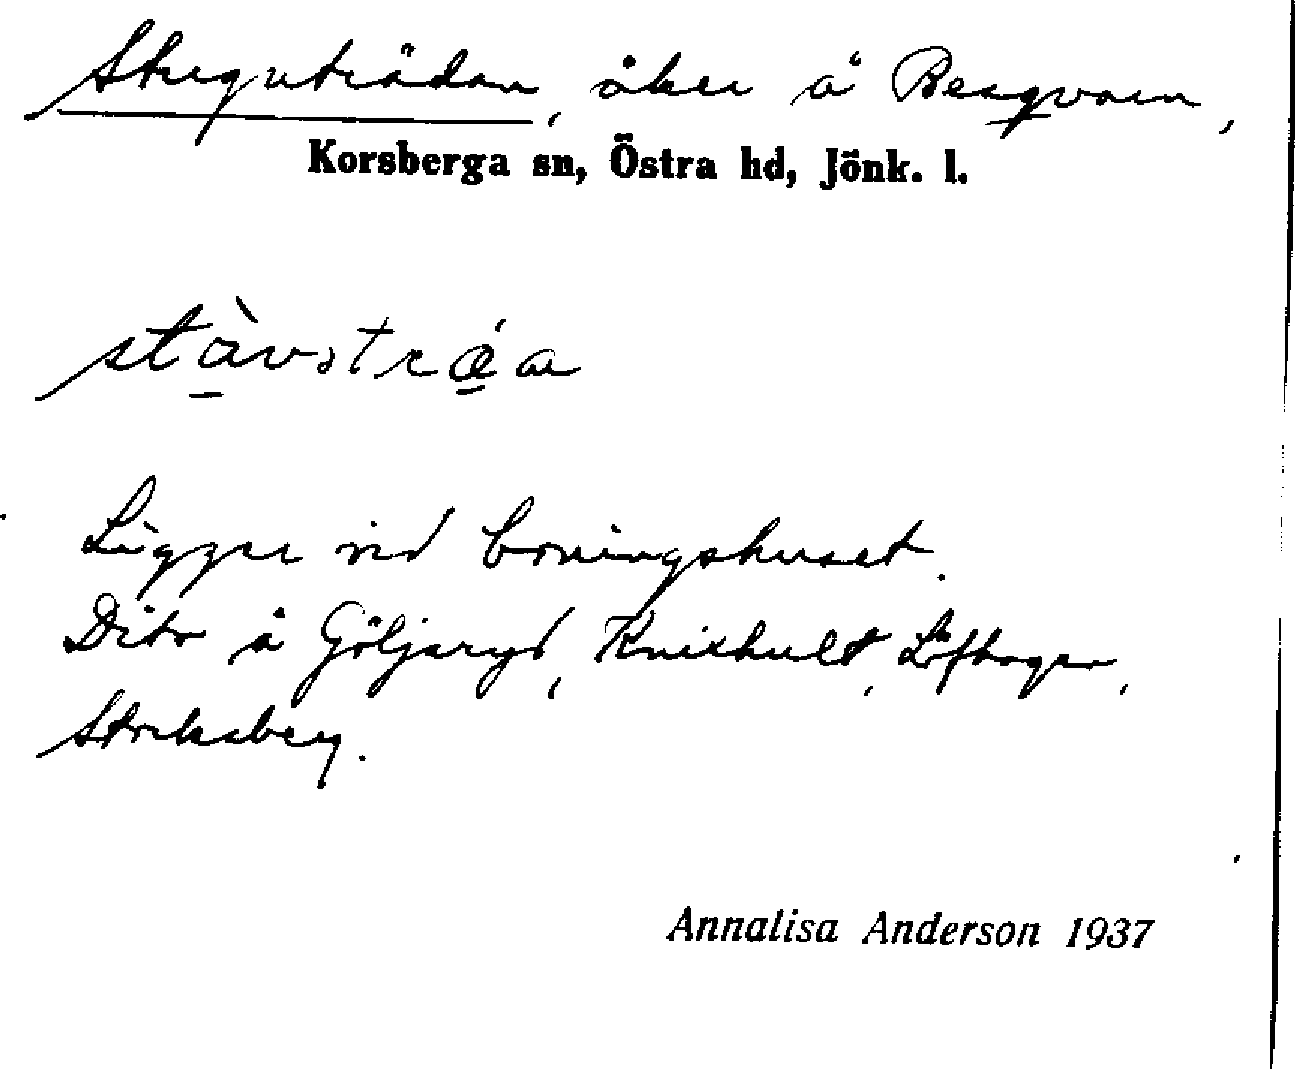 Stuguträdan, åker å Bergvarn,
Korsberga sn, Östra hd, Jönk. l.
Ligger vid boningshuset.
Dito å Göljaryd, Knixhult, Löfhagen,
Stocksberg.
Annalisa Anderson 1937